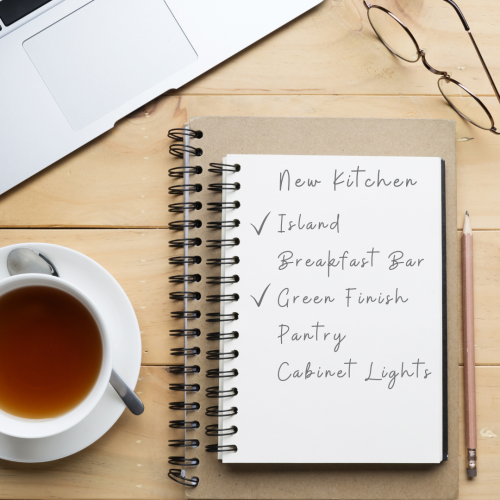 New Kitchen
✓ Island
Breakfast Bar
✓ Green Finish
Pantry
Cabinet Lights